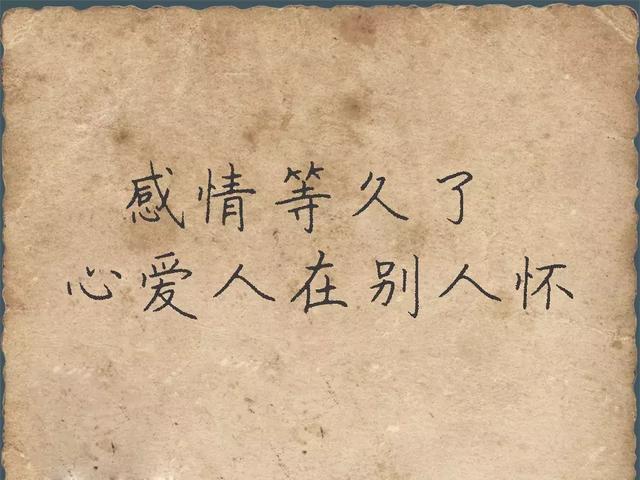 感情等久了
心爱人在别人怀